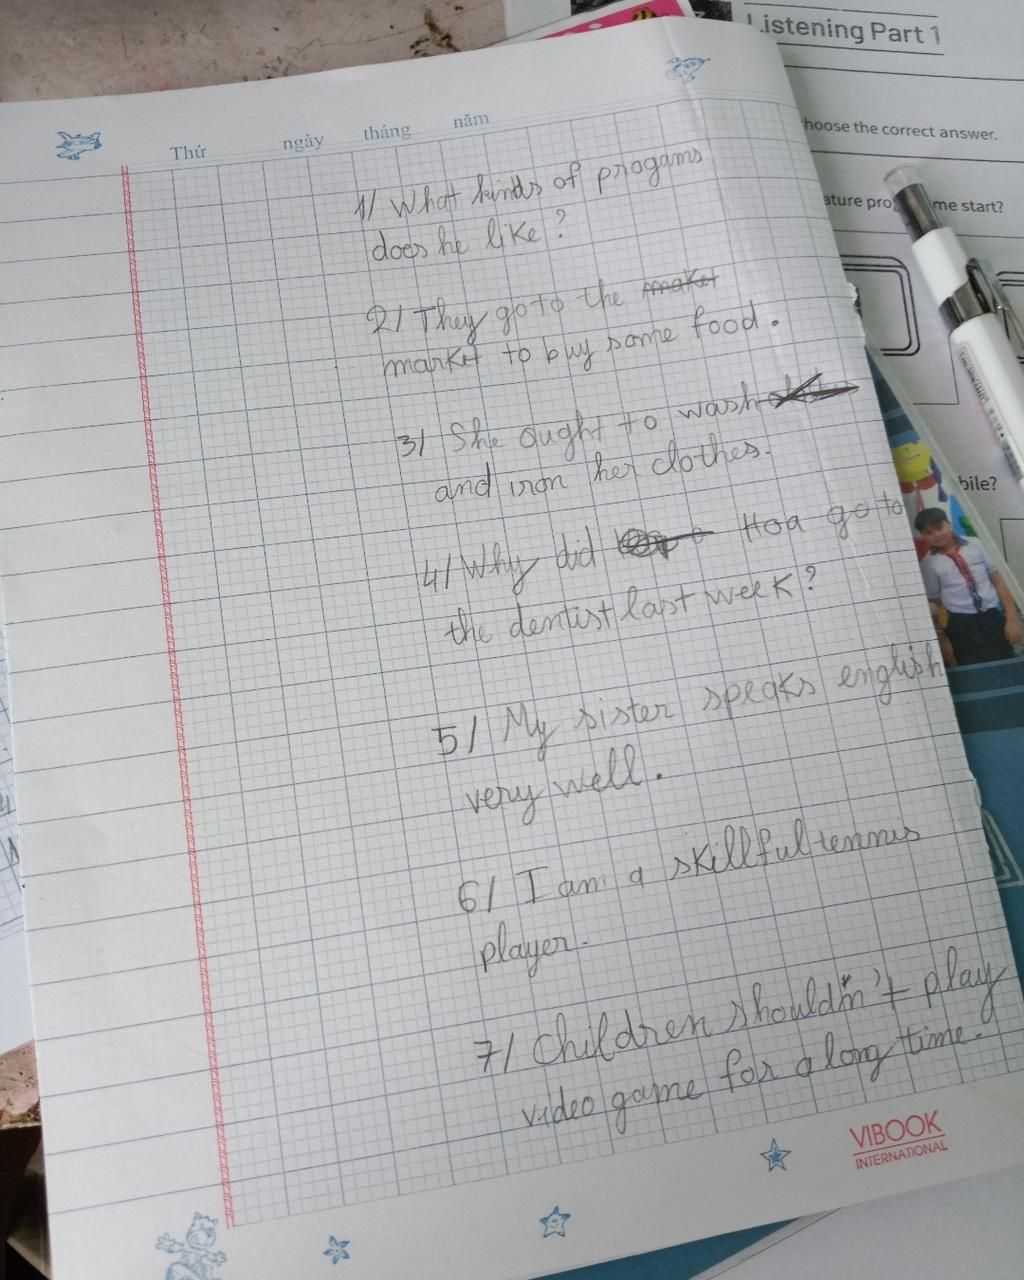 Listening Part 1
hoose the correct answer.
ature pro me start?
bile?
Thứ ngày tháng năm
1/ What kinds of progams
does he like ?
2/ They go to the maket
market to buy some food.
3/ She ought to wash
and iron her clothes.
4/ Why did Hoa go to
the dentist last week ?
5/ My sister speaks english
very well.
6/ I am a skillful tennis
player.
7/ Children shouldn't play
video game for a long time.
VIBOOK
INTERNATIONAL